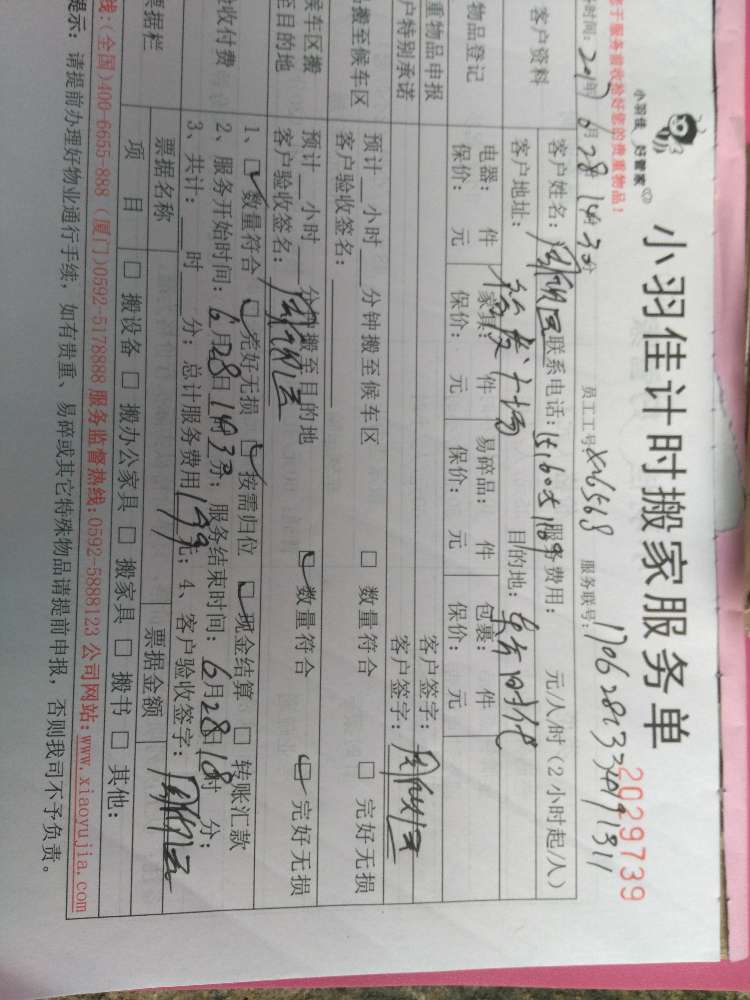 小羽佳 好管家
小羽佳计时搬家服务单
2029739
于服务前收拾好您的贵重物品！
时间: 2017年6月28 14 30分 员工工号: XY6568 服务联号:
客户资料 客户姓名: 联系电话: 服务费用: 元/人/时（2小时起/人）
客户地址: 目的地:
物品登记 电器: 件 家具: 件 易碎品: 件 包裹: 件
保价: 元 保价: 元 保价: 元 保价: 元
重物品申报 客户签字:
户特别承诺 客户签字:
搬至候车区 预计__小时__分钟搬至候车区 □ 数量符合 □ 完好无损
客户验收签名:
候车区搬 预计__小时__分钟搬至目的地 □ 数量符合 □ 完好无损
至目的地 客户验收签名:
验收付费 1、□ 数量符合 □ 完好无损 □ 按需归位 □ 现金结算 □ 转账汇款
2、服务开始时间: 6月28日14时33分; 服务结束时间: 6月28日18时 分;
3、共计:____时____分; 总计服务费用199元; 4、客户验收签字:
票据栏 票据名称 票据金额
项 目 □ 搬设备 □ 搬办公家具 □ 搬家具 □ 搬书 □ 其他:
线:(全国)400-6655-888 (厦门)0592-5178888 服务监督热线:0592-5888123 公司网站:www.xiaoyujia.com
提示: 请提前办理好物业通行手续, 如有贵重、易碎或其它特殊物品请提前申报, 否则我司不予负责。